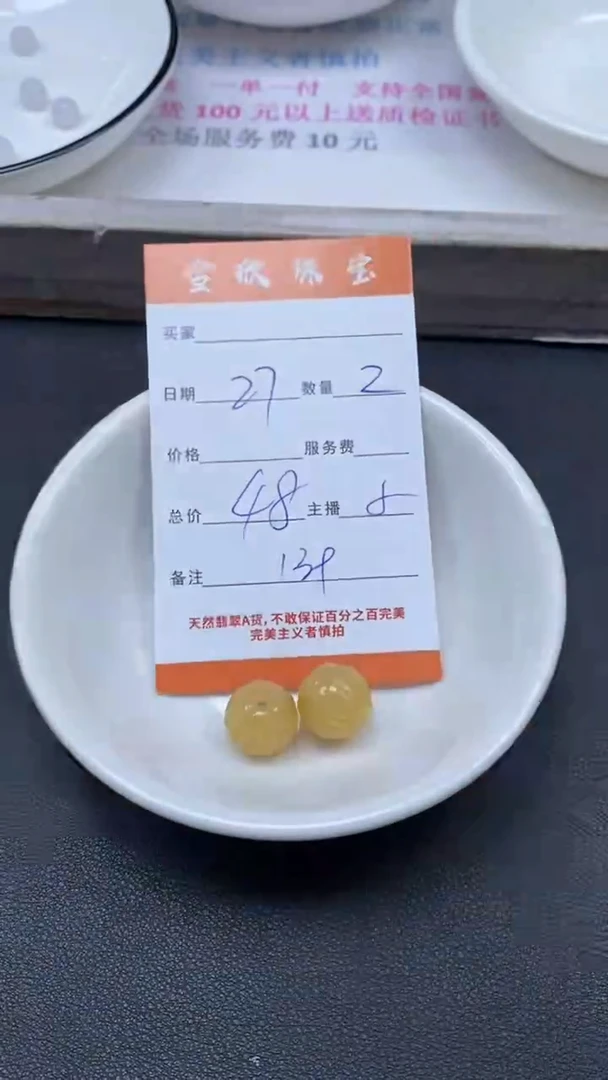 美主义者慎拍
一单一付 支持全国
货 100 元以上送质检证书
全场服务费 10 元
珠宝
买家
日期 27 数量 2
价格 服务费
总价 48 主播
备注
天然翡翠A货,不敢保证百分之百完美
完美主义者慎拍